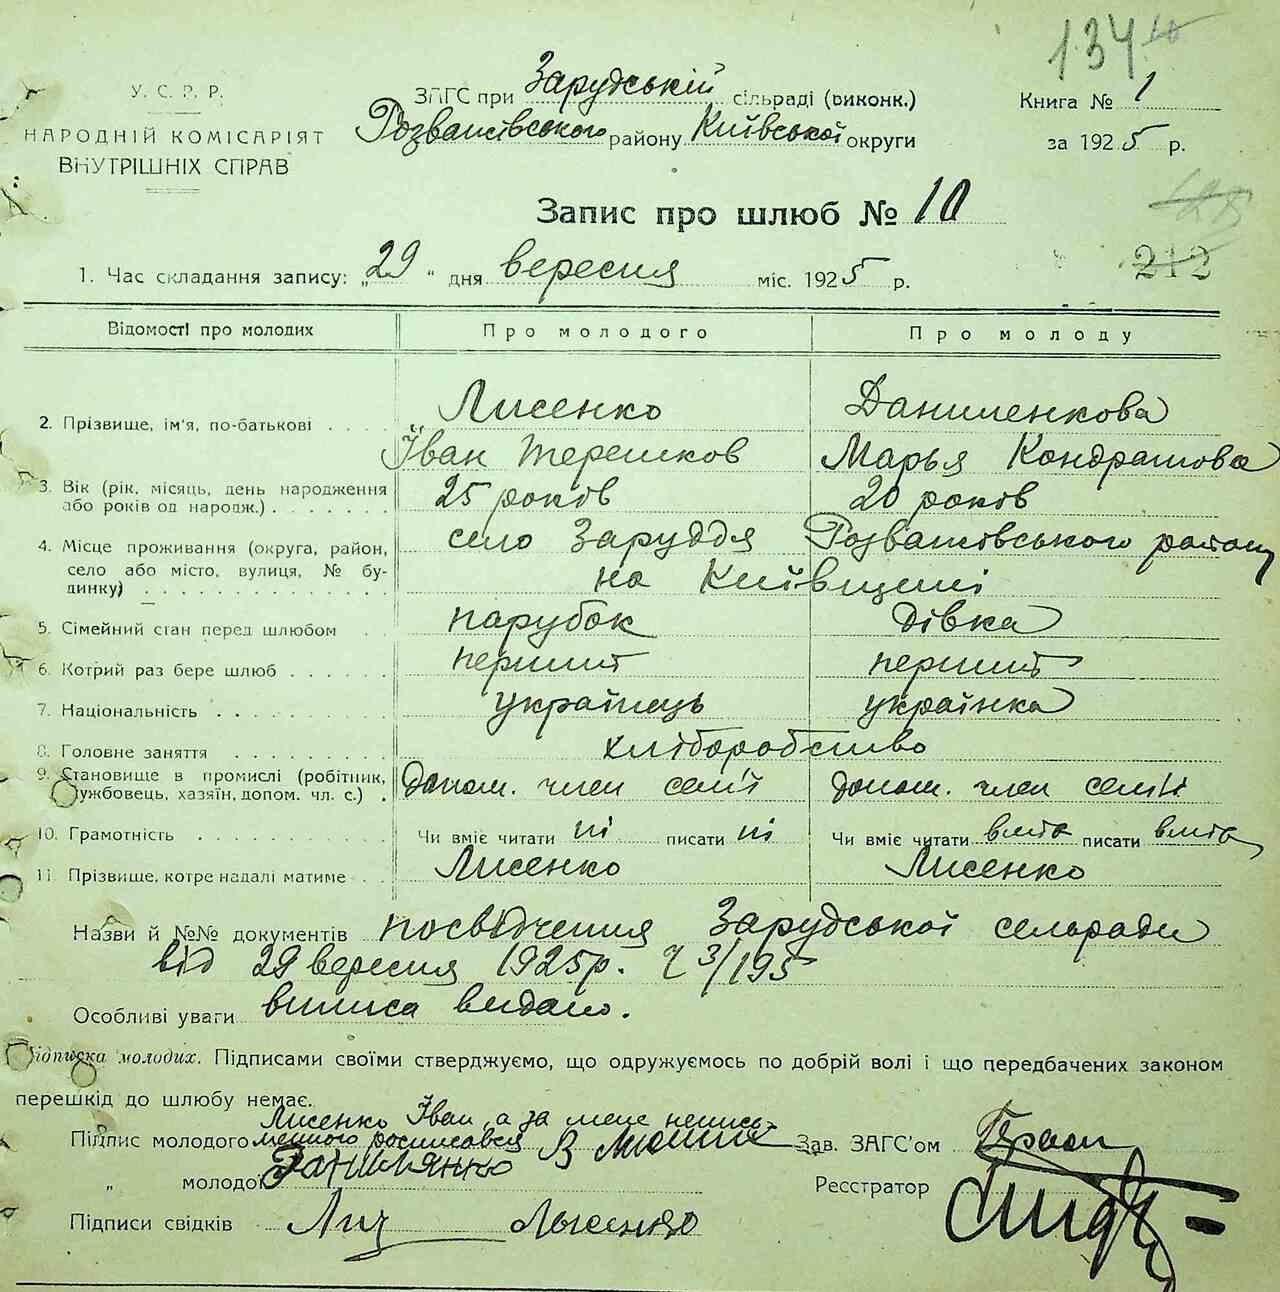 134
У. С. Р. Р.
НАРОДНІЙ КОМІСАРІЯТ
ВНУТРІШНІХ СПРАВ
ЗАГС при Зарудській сільраді (виконк.)
Розважівського району Київської округи
Книга № 1
за 1925 р.
Запис про шлюб № 10
212
1. Час складання запису: „29" дня вересня міс. 1925 р.
Відомості про молодих Про молодого Про молоду
2. Прізвище, ім'я, по-батькові Лисенко Даниленкова
Іван Терешков Марья Кондратова
3. Вік (рік, місяць, день народження або років од народж.) 25 років 20 років
4. Місце проживання (округа, район, село або місто, вулиця, № будинку) село Заруддя Розважівського району
на Київщині
5. Сімейний стан перед шлюбом парубок дівка
6. Котрий раз бере шлюб перший перший
7. Національність українець українка
8. Головне заняття хліборобство
9. Становище в промислі (робітник, службовець, хазяїн, допом. чл. с.) допом. член семії допом. член семії
10. Грамотність Чи вміє читати ні писати ні Чи вміє читати вміє писати вміє
11. Прізвище, котре надалі матиме Лисенко Лисенко
Назви й №№ документів посвідчення Зарудської сельради
від 29 вересня 1925 р. Ч 3/195
Особливі уваги виписа видано.
Підписка молодих. Підписами своїми стверджуємо, що одружуємось по добрій волі і що передбачених законом
перешкід до шлюбу немає.
Лисенко Іван а за мене неписьменного росписався В
Підпис молодого
Зав. ЗАГС'ом
„ молодої
Реєстратор
Підписи свідків Лисенко